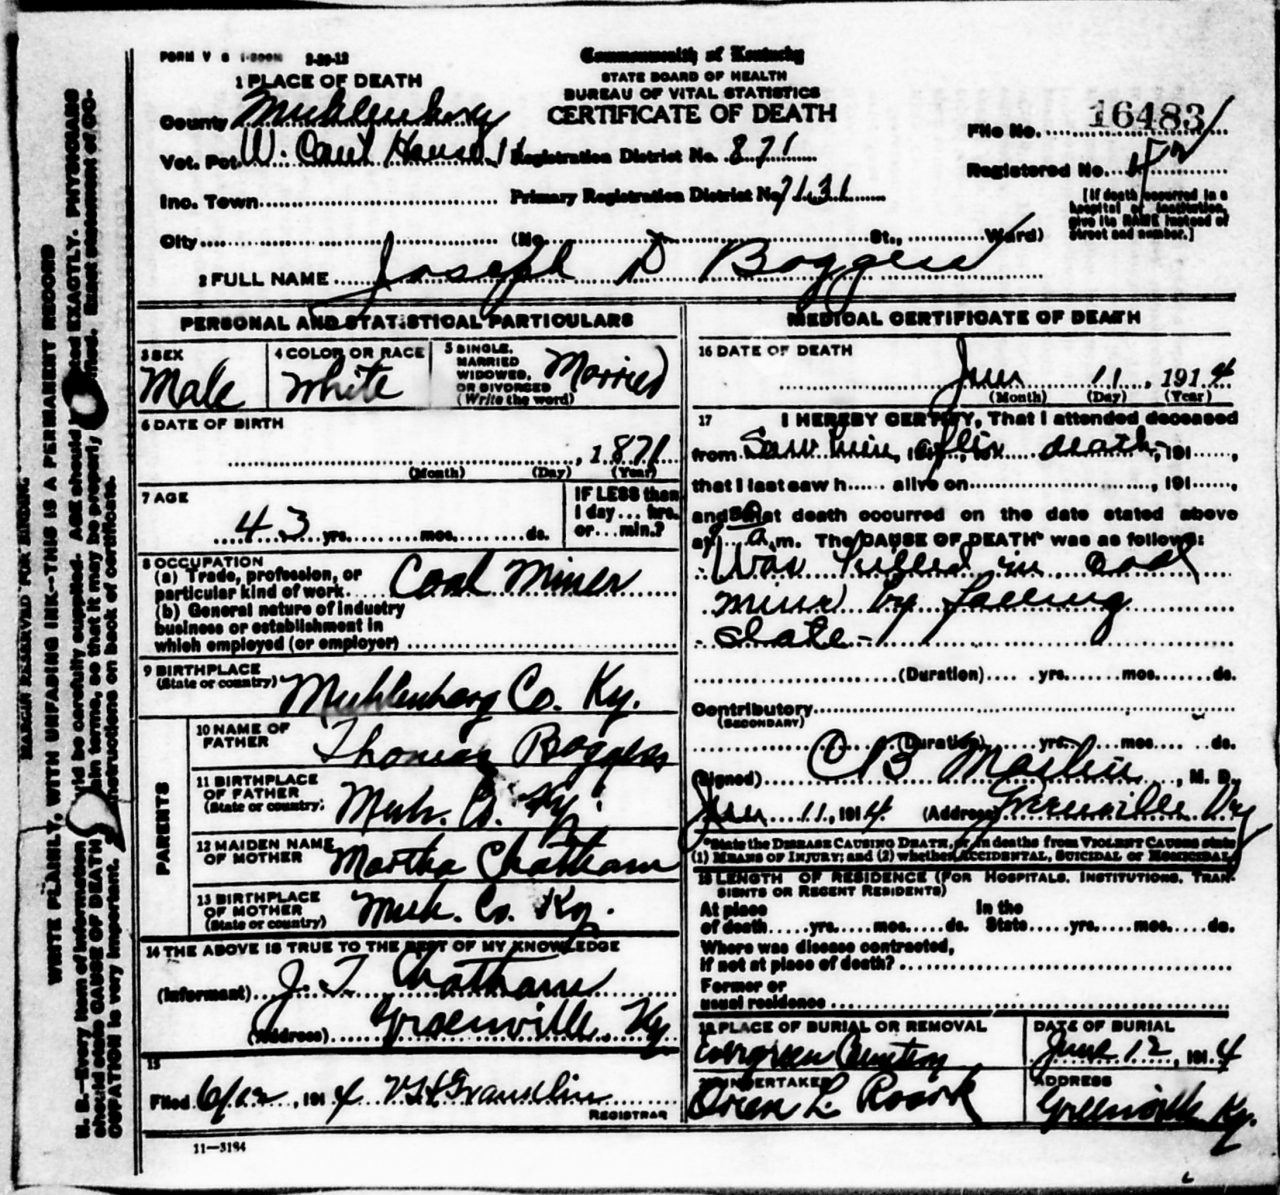 FORM V S 1-500M 3-20-12
Commonwealth of Kentucky
STATE BOARD OF HEALTH
BUREAU OF VITAL STATISTICS
CERTIFICATE OF DEATH
1 PLACE OF DEATH
County Muhlenberg
Vot. Pct. W. Court House 11 Registration District No. 871
Inc. Town Primary Registration District No. 7131
City (No. St., Ward)
File No. 16483
Registered No.
[If death occurred in a
hospital or institution,
give its NAME instead of
street and number.]
2 FULL NAME Joseph D Boggess
PERSONAL AND STATISTICAL PARTICULARS
3 SEX
Male
4 COLOR OR RACE
White
5 SINGLE,
MARRIED
WIDOWED,
OR DIVORCED
(Write the word)
Married
6 DATE OF BIRTH
, 1871
(Month) (Day) (Year)
7 AGE
43 yrs. mos. ds.
IF LESS than
1 day... hrs.
or... min.?
8 OCCUPATION
(a) Trade, profession, or
particular kind of work Coal Miner
(b) General nature of industry
business or establishment in
which employed (or employer)
9 BIRTHPLACE
(State or country) Muhlenberg Co. Ky.
PARENTS
10 NAME OF
FATHER Thomas Boggess
11 BIRTHPLACE
OF FATHER
(State or country) Muh. Co. Ky.
12 MAIDEN NAME
OF MOTHER Martha Chatham
13 BIRTHPLACE
OF MOTHER
(State or country) Muh. Co. Ky.
14 THE ABOVE IS TRUE TO THE BEST OF MY KNOWLEDGE
(Informant) J. T. Chatham
(Address) Greenville, Ky
15
Filed 6/12, 1914 Franklin
REGISTRAR
11—3184
MEDICAL CERTIFICATE OF DEATH
16 DATE OF DEATH
June 11, 1914
(Month) (Day) (Year)
17 I HEREBY CERTIFY, That I attended deceased
from Saw him, 191 after death, 191 ,
that I last saw h alive on , 191 ,
and that death occurred on the date stated above
at a m. The CAUSE OF DEATH* was as follows:
Was killed in coal
mine by falling
slate-
(Duration) yrs. mos. ds.
Contributory
(SECONDARY)
(Duration) yrs. mos. ds.
(Signed) C B Martin, M. D.
June 11, 1914 (Address) Greenville Ky
*State the DISEASE CAUSING DEATH, or, in deaths from VIOLENT CAUSES state
(1) MEANS OF INJURY; and (2) whether ACCIDENTAL, SUICIDAL or HOMICIDAL.
18 LENGTH OF RESIDENCE (FOR HOSPITALS, INSTITUTIONS, TRAN-
SIENTS OR RECENT RESIDENTS)
At place In the
of death yrs. mos. ds. State yrs. mos. ds.
Where was disease contracted,
if not at place of death?
Former or
usual residence
19 PLACE OF BURIAL OR REMOVAL
Evergreen Cemetery
DATE OF BURIAL
June 12, 1914
20 UNDERTAKER
Orien L. Roark
ADDRESS
Greenville Ky.
MARGIN RESERVED FOR BINDING
WRITE PLAINLY, WITH UNFADING INK—THIS IS A PERMANENT RECORD
N. B.—Every item of information should be carefully supplied. AGE should be stated EXACTLY. PHYSICIANS
should state CAUSE OF DEATH in plain terms, so that it may be properly classified. Exact statement of OC-
CUPATION is very important. See instructions on back of certificate.